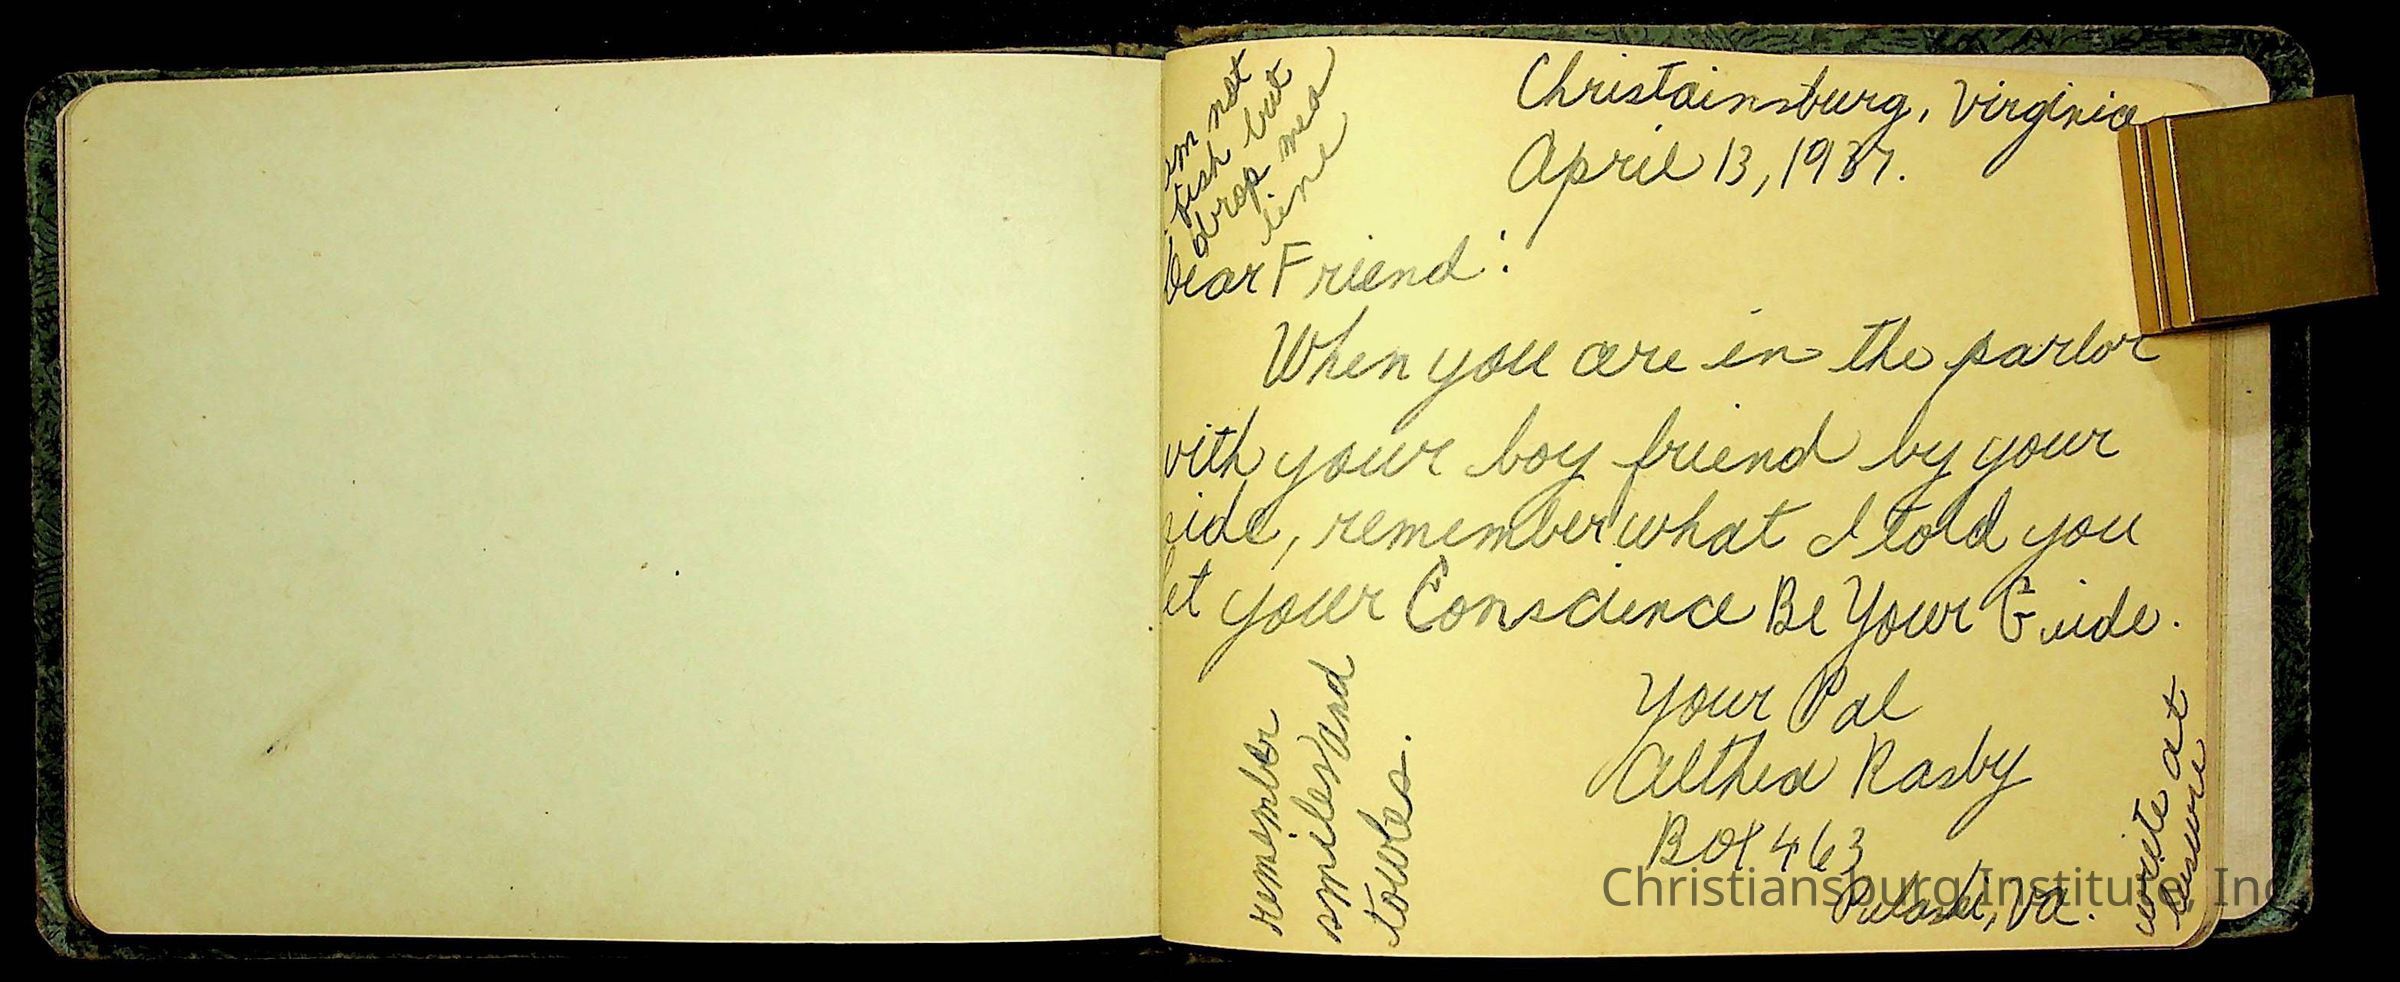 im not
fish but
drop me a
line
Christainsburg, Virginia
April 13, 1937.
Dear Friend:
When you are in the parlor
with your boy friend by your
side, remember what I told you
let your Conscience Be Your Guide.
Your Pal
Althea Rasby
Box 463
Pulaski, Va.
remember
smiles and
towles.
write at
Christiansburg Institute, Inc